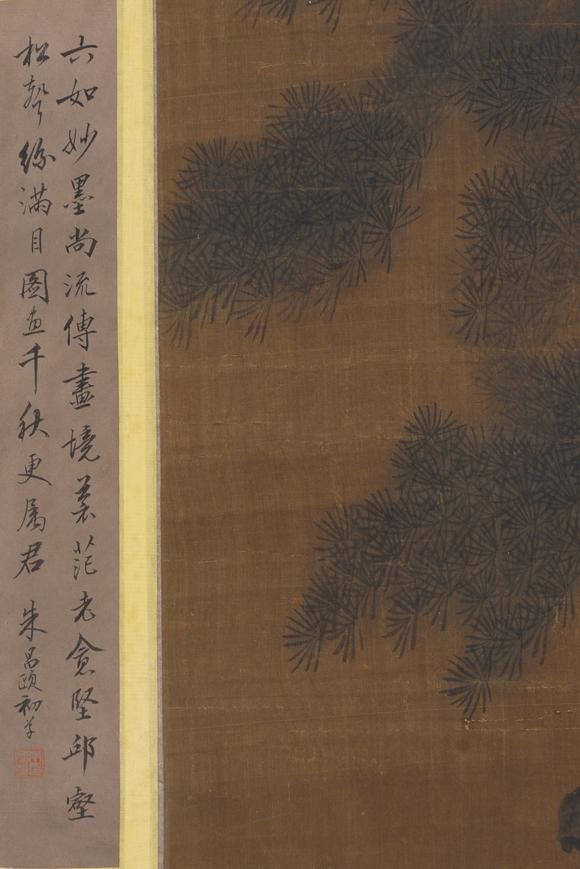 六如妙墨尚流傳畫境蒼茫老愈堅邱壑
松聲紛滿目圖畫千秋更屬君 朱昌頤初草